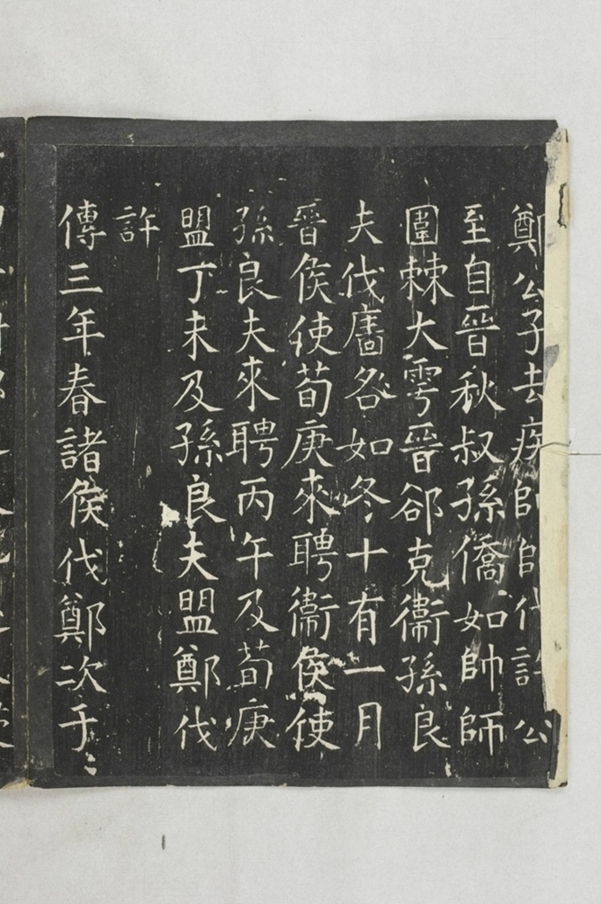 鄭公子去疾帥師伐許公
至自晉秋叔孫僑如帥師
圍棘大雩晉郤克衞孫良
夫伐廧咎如冬十有一月
晉侯使荀庚來聘衞侯使
孫良夫來聘丙午及荀庚
盟丁未及孫良夫盟鄭伐
許
傳三年春諸侯伐鄭次于